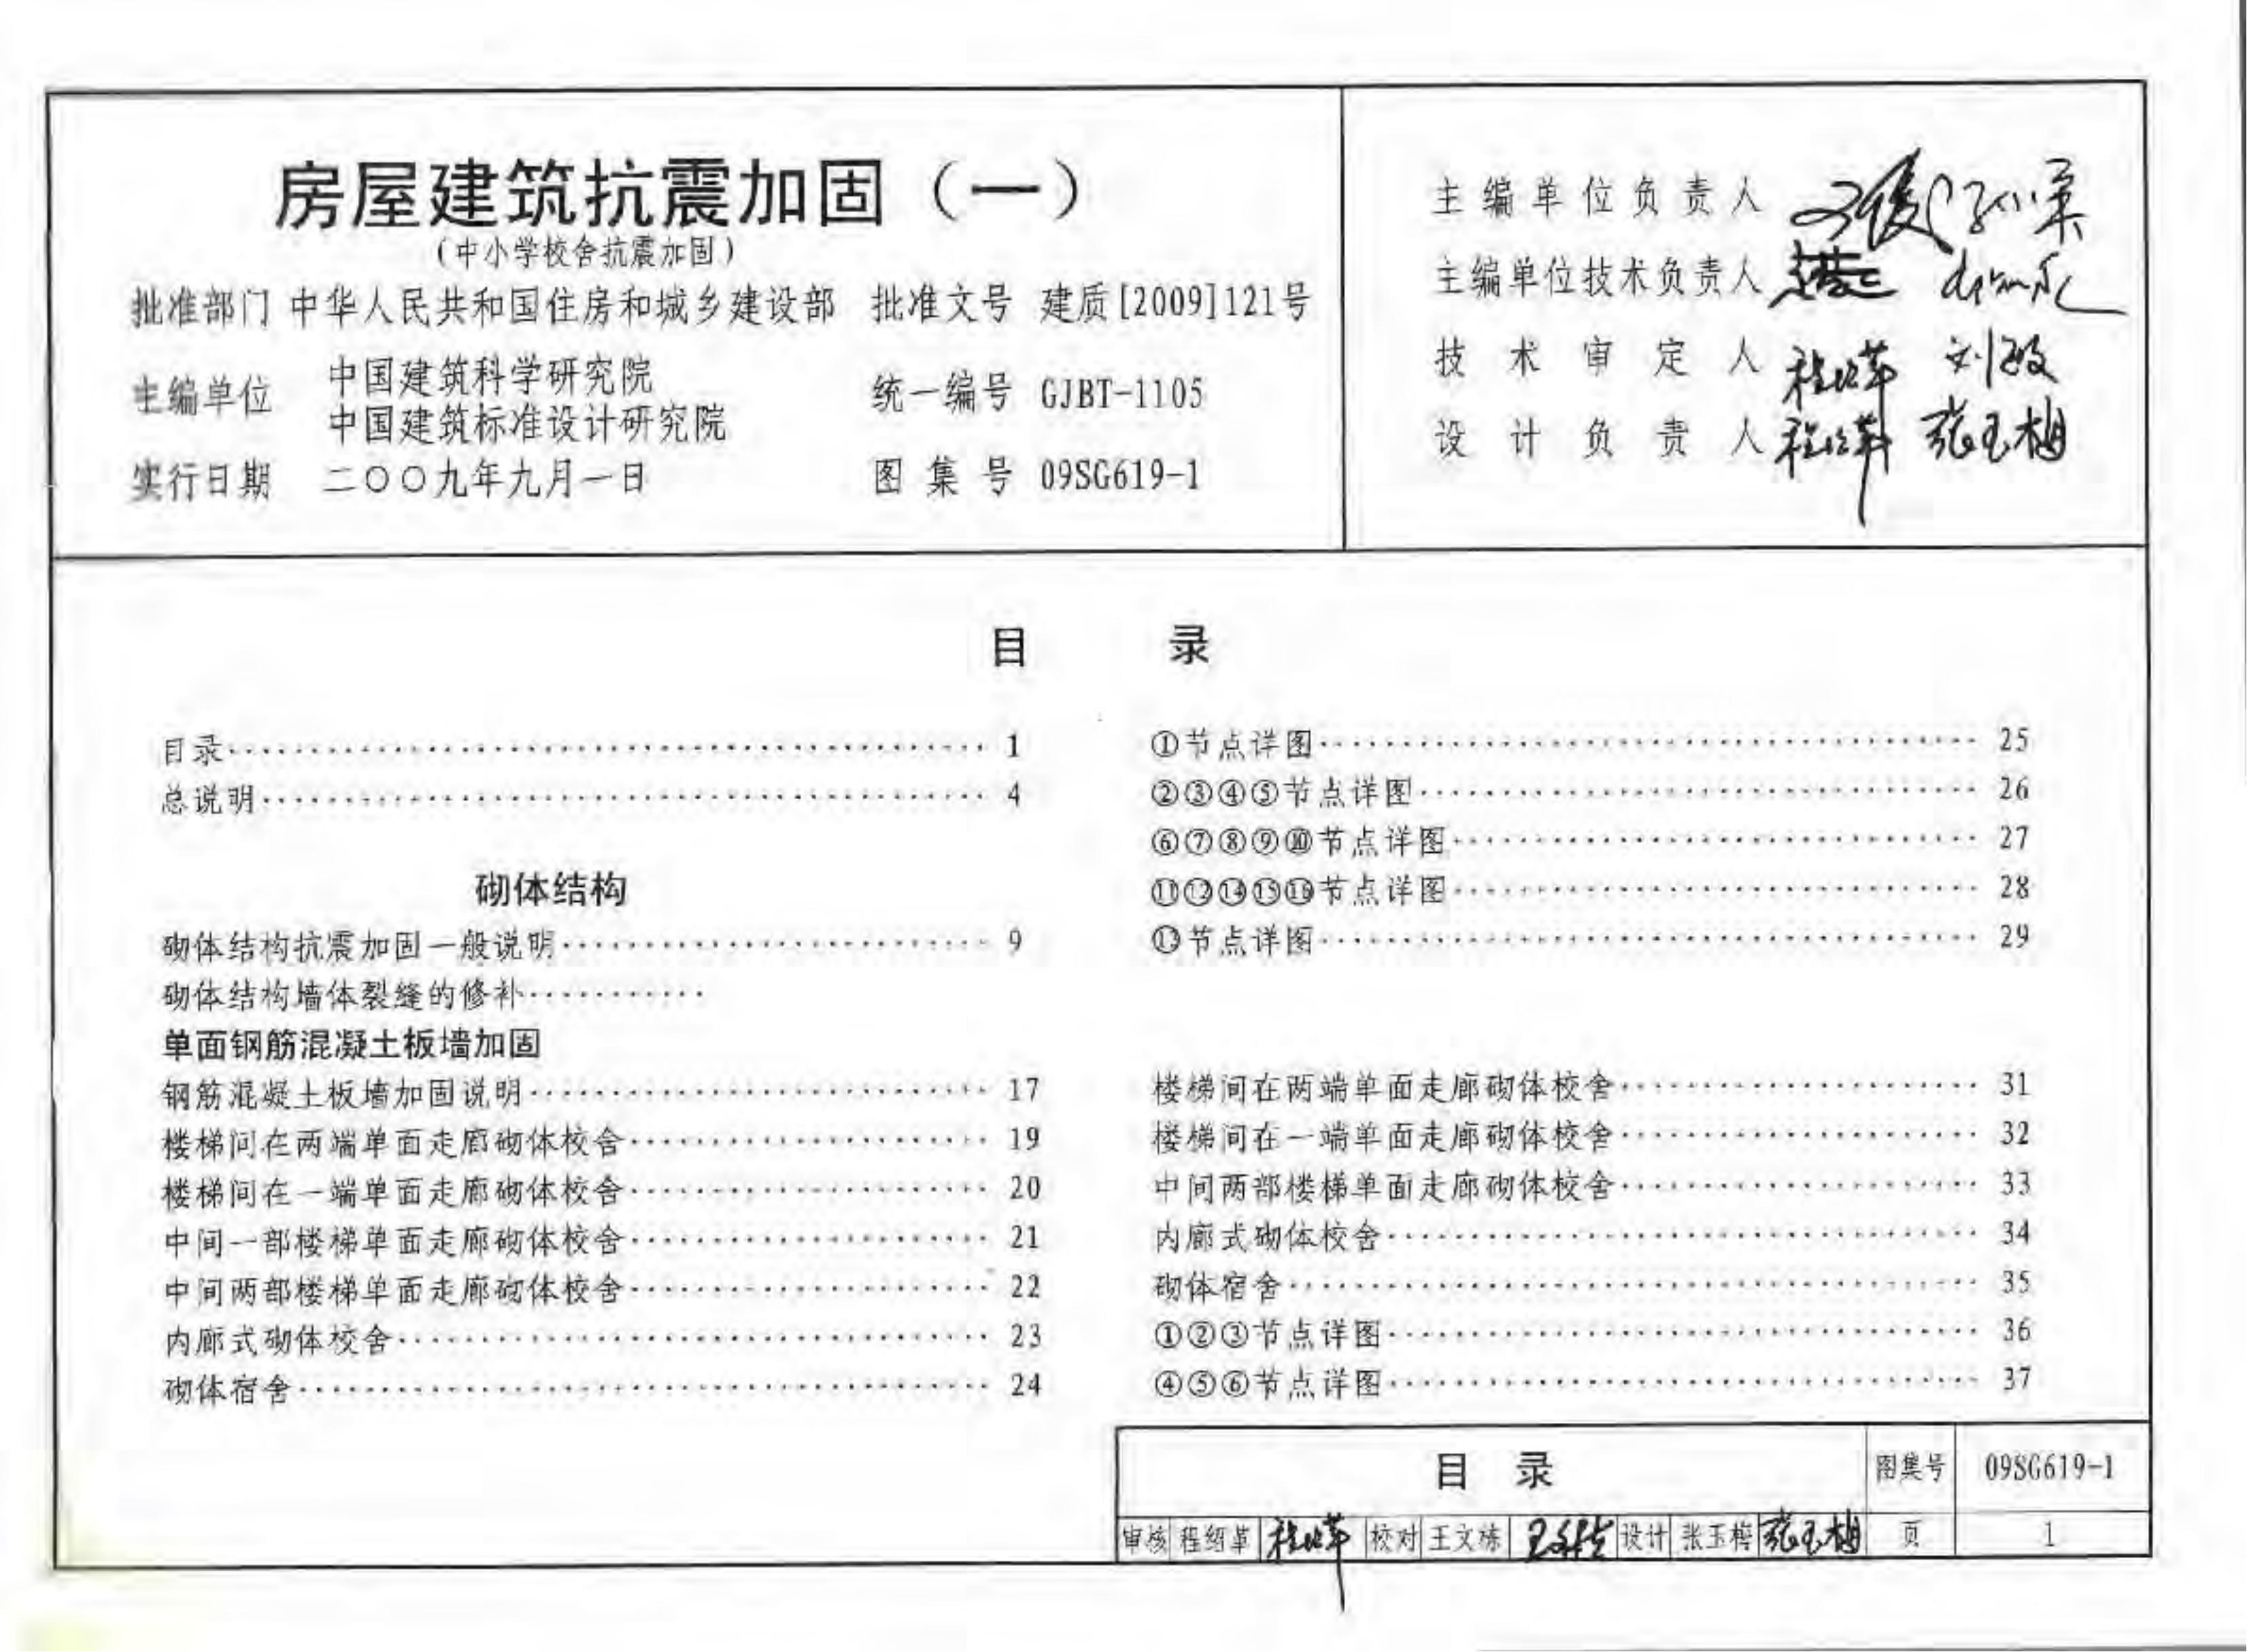 房屋建筑抗震加固（一）
（中小学校舍抗震加固）
批准部门 中华人民共和国住房和城乡建设部 批准文号 建质[2009]121号
主编单位 中国建筑科学研究院
中国建筑标准设计研究院
统一编号 GJBT-1105
实行日期 二〇〇九年九月一日 图集号 09SG619-1
主编单位负责人
主编单位技术负责人
技术审定人 刘敏
设计负责人 张玉梅
目录
目录 1
总说明 4
砌体结构
砌体结构抗震加固一般说明 9
砌体结构墙体裂缝的修补
单面钢筋混凝土板墙加固
钢筋混凝土板墙加固说明 17
楼梯间在两端单面走廊砌体校舍 19
楼梯间在一端单面走廊砌体校舍 20
中间一部楼梯单面走廊砌体校舍 21
中间两部楼梯单面走廊砌体校舍 22
内廊式砌体校舍 23
砌体宿舍 24
①节点详图 25
②③④⑤节点详图 26
⑥⑦⑧⑨⑩节点详图 27
⑪⑫⑭⑮⑯节点详图 28
⑬节点详图 29
楼梯间在两端单面走廊砌体校舍 31
楼梯间在一端单面走廊砌体校舍 32
中间两部楼梯单面走廊砌体校舍 33
内廊式砌体校舍 34
砌体宿舍 35
①②③节点详图 36
④⑤⑥节点详图 37
目录 图集号 09SG619-1
审核 程绍革 校对 王文栋 设计 张玉梅 张玉梅 页 1